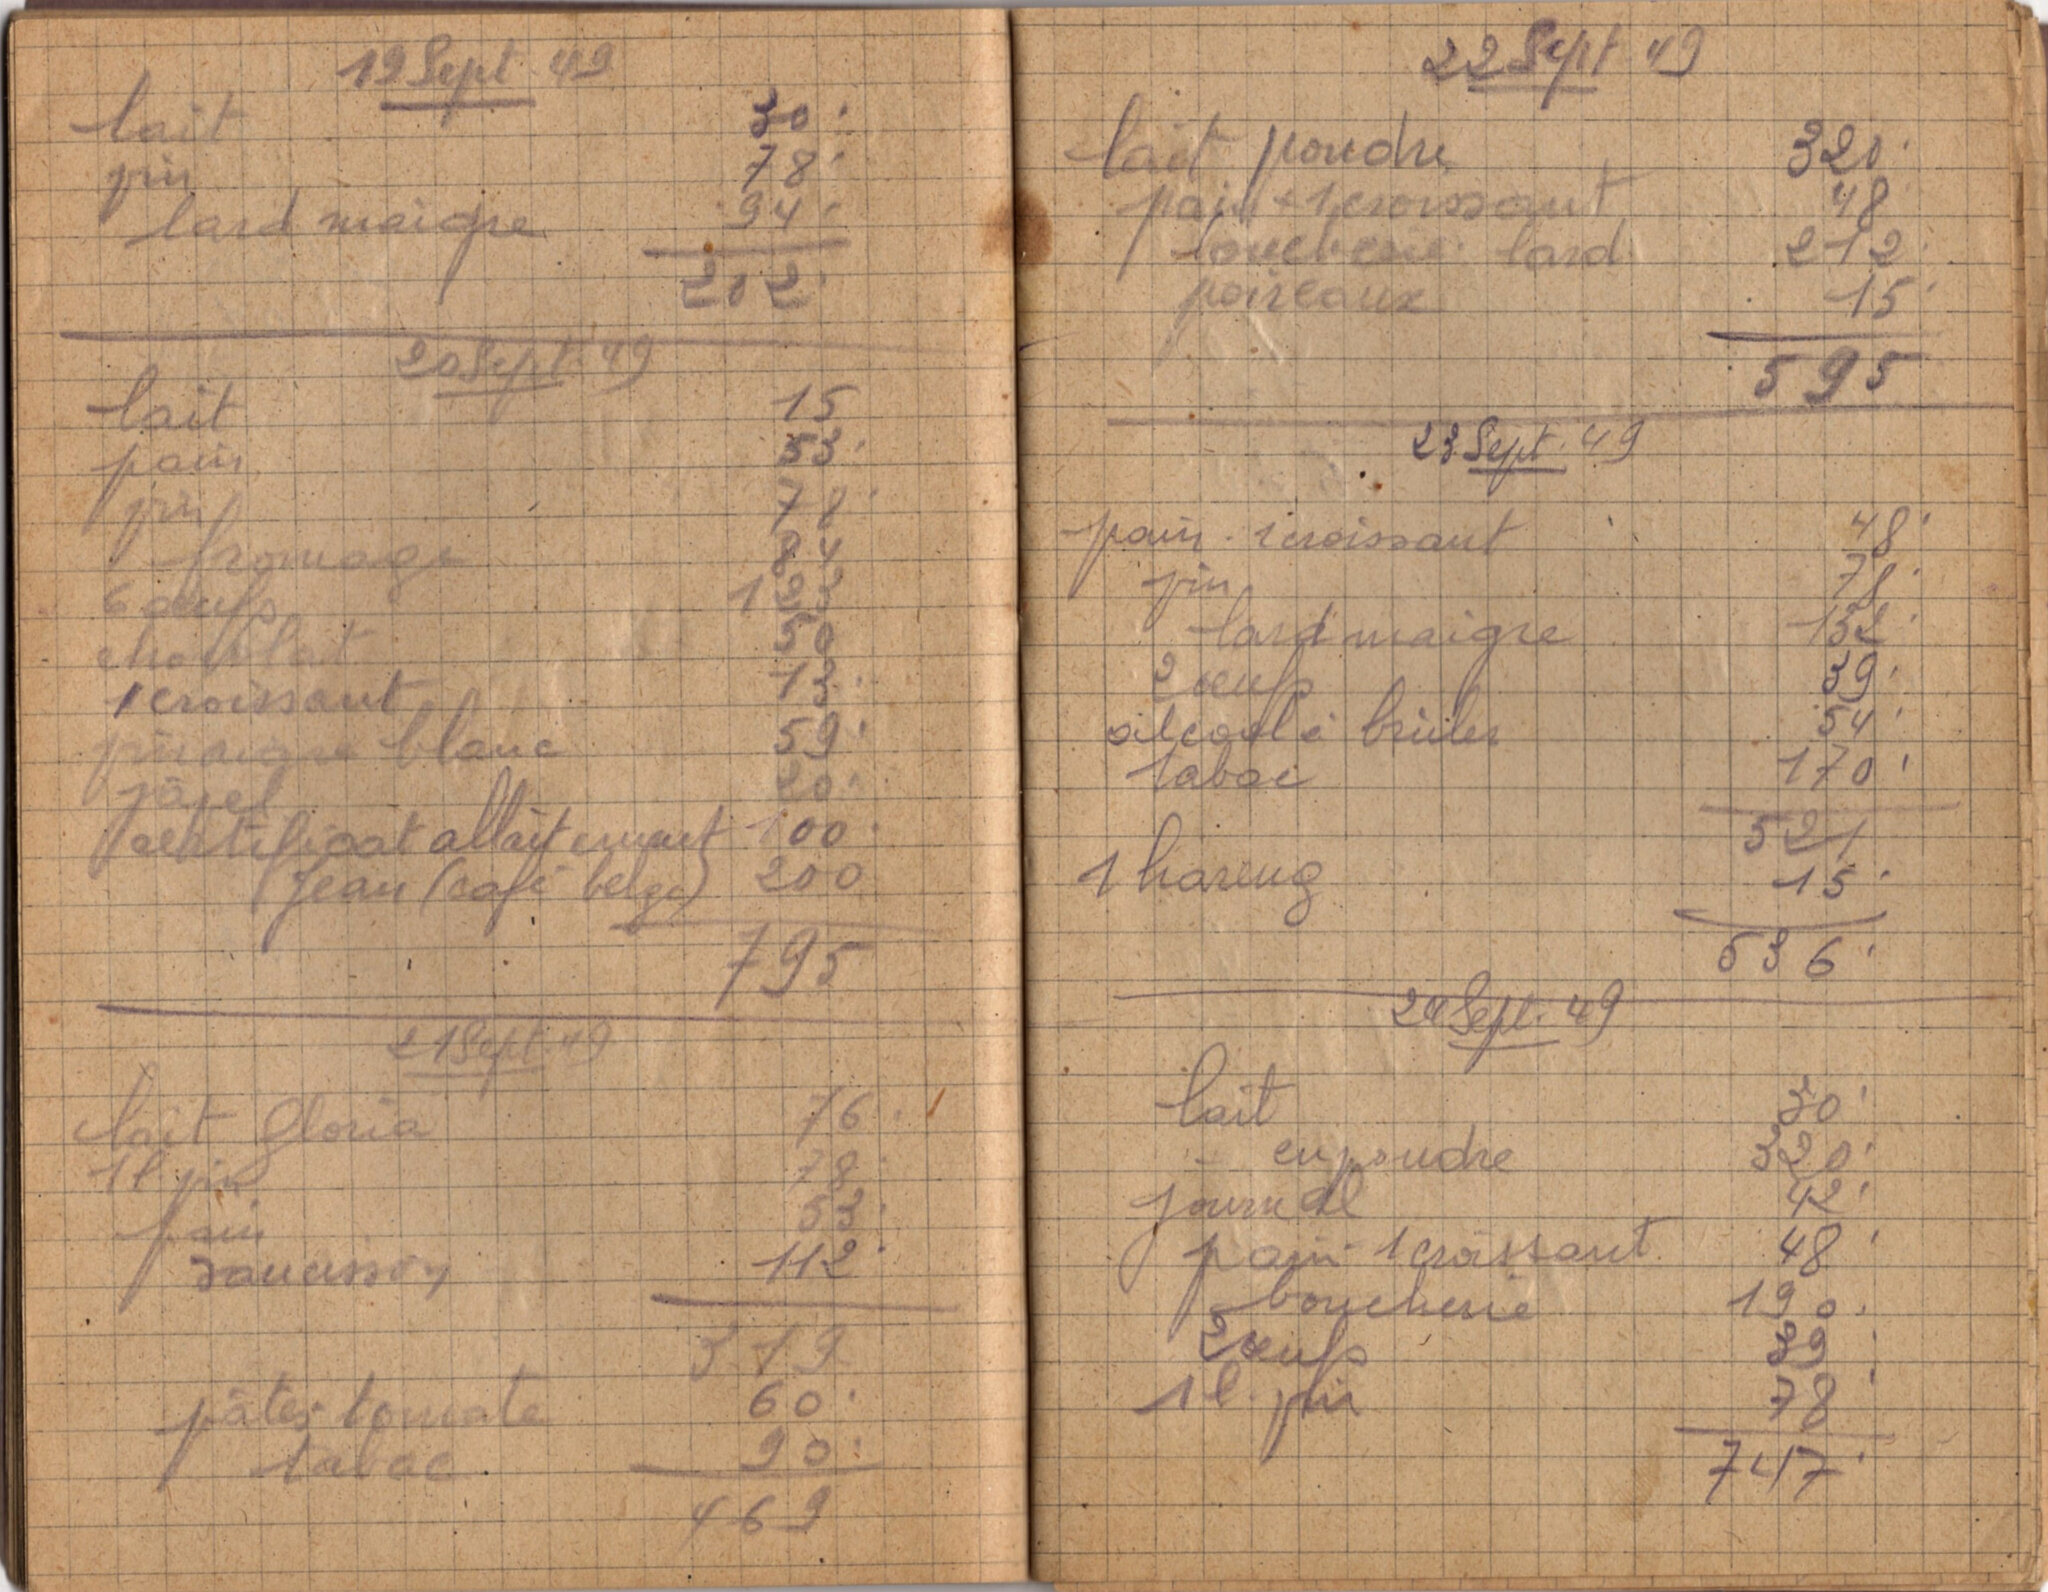 19 Sept. 49
lait 30
vin 78
lard maigre 94
202
20 Sept. 49
lait 15
pain 53
vin 78
fromage 84
6 oeufs 123
chocolat 50
1 croissant 13
vinaigre blanc 59
papel 20
certificat allaitement 100
Jean (café belge) 200
795
21 Sept. 49
lait Gloria 76
1 l. vin 78
pain 53
saucisson 112
319
pâtes tomate 60
tabac 90
469
22 Sept 49
lait poudre 320
pain + 1 croissant 48
boucherie lard 212
poireaux 15
595
23 Sept. 49
pain - 1 croissant 48
vin 78
lard maigre 132
2 oeufs 39
alcool à brûler 54
tabac 170
521
1 hareng 15
536
24 Sept. 49
lait 30
- en poudre 320
journal 42
pain - 1 croissant 48
boucherie 190
2 oeufs 39
1 l. vin 78
747